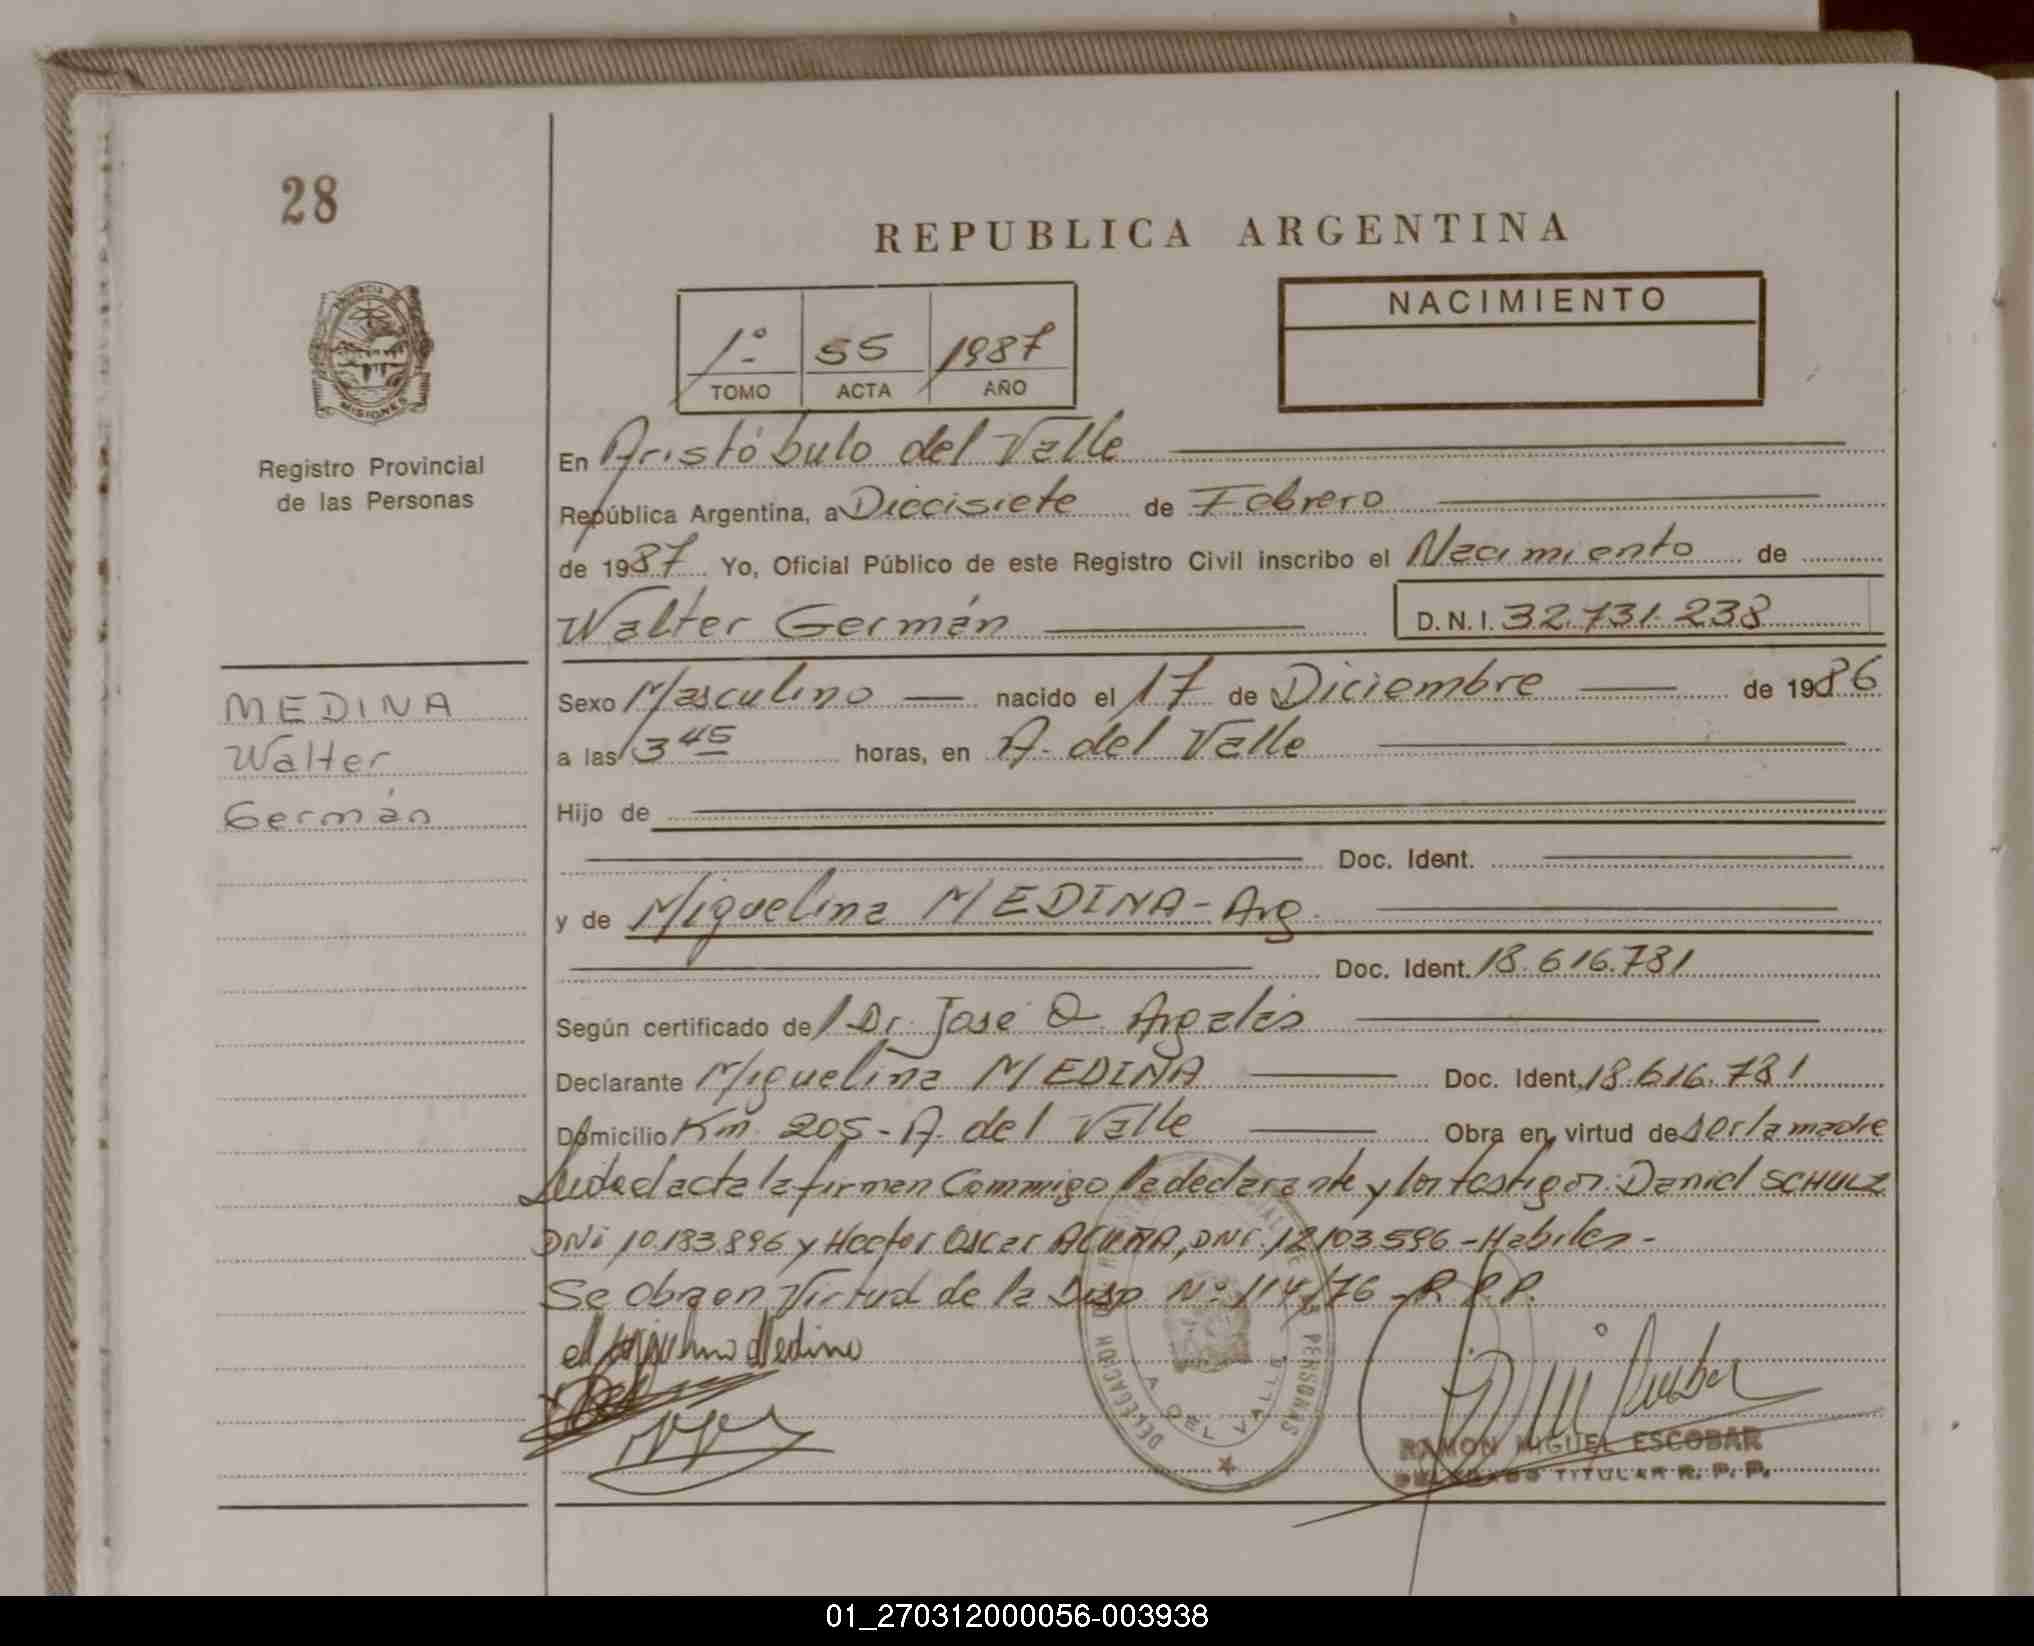 28
REPUBLICA ARGENTINA
NACIMIENTO
1º 55 1987
TOMO ACTA AÑO
PROVINCIA DE
MISIONES
Registro Provincial
de las Personas
En Aristóbulo del Valle
República Argentina, a Diecisiete de Febrero
de 1987 Yo, Oficial Público de este Registro Civil inscribo el Nacimiento de
Walter Germán D.N.I. 32.731.238
MEDINA
Walter
Germán
Sexo Masculino nacido el 17 de Diciembre de 1986
a las 13 45 horas, en A. del Valle
Hijo de
Doc. Ident.
y de Miguelina MEDINA - Arg.
Doc. Ident. 18.616.781
Según certificado de Dr. José O. Argalás
Declarante Miguelina MEDINA Doc. Ident. 18.616.781
Domicilio Km. 205 - A. del Valle Obra en virtud de ser la madre
Leída el acta la firman Conmigo la declarante y los testigos: Daniel SCHULZ
DNi 10.183.896 y Hector Oscar ACUÑA, DNi. 12.103.596 - Habiles -
Se obra en Virtud de la Disp Nº 114/76 - R.P.P.
Miguelina Medina
DELEGACION DEL REGISTRO PROVINCIAL DE LAS PERSONAS
A. DEL VALLE
RAMON MIGUEL ESCOBAR
DELEGADO TITULAR R. P. P.
01_270312000056-003938